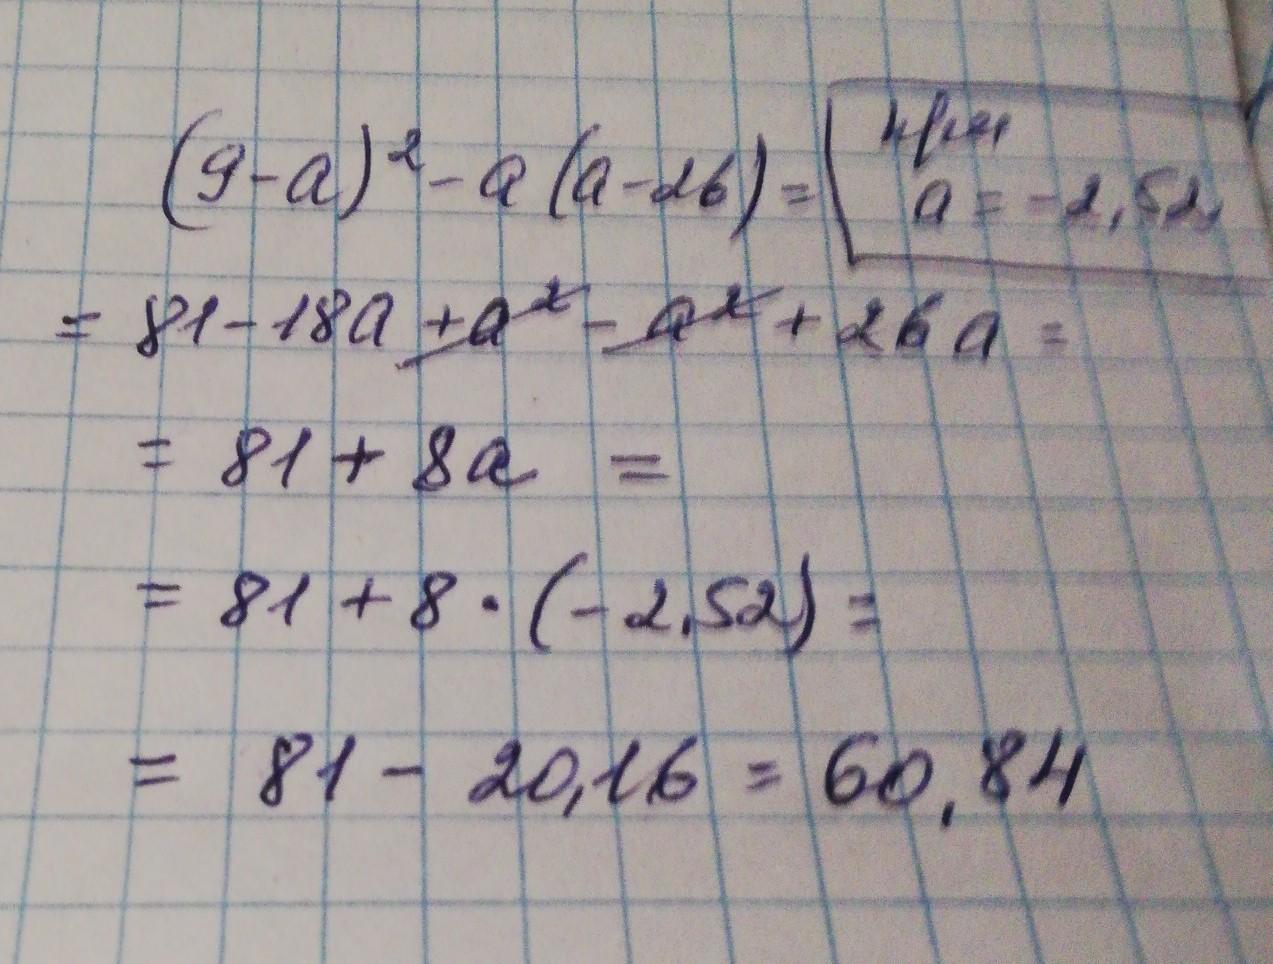 (9-a)²-a(a-26)= при
a=-2,52
= 81-18a+a²-a²+26a=
= 81+8a =
= 81+8·(-2,52)=
= 81-20,16=60,84